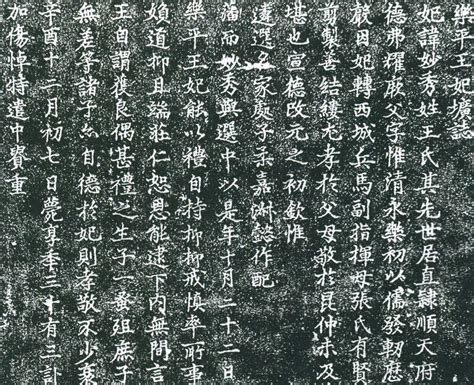 樂平王妃壙誌
妃諱妙秀姓王氏其先世居直隸順天府
德弗耀厥父字惟清永樂初以儒發軔歷
因妃轉西城兵馬副指揮母張氏有賢
剪製善結縷尤孝於父母敬於昆仲未及
堪也宣德改元之初欽惟
遴選家處子柔嘉淑懿作配
藩而妙秀與選中以是年十月二十二日
樂平王妃能以禮自持抑抑戒慎率所事
媍道抑且端莊仁恕恩能逮下內無間言
王自謂獲良偶甚禮之生子一蚤殂庶子
無差等諸子亦自德於妃則孝敬不少衰
辛酉十二月初七日薨享秊三十有三訃
加傷悼特遣中貴重